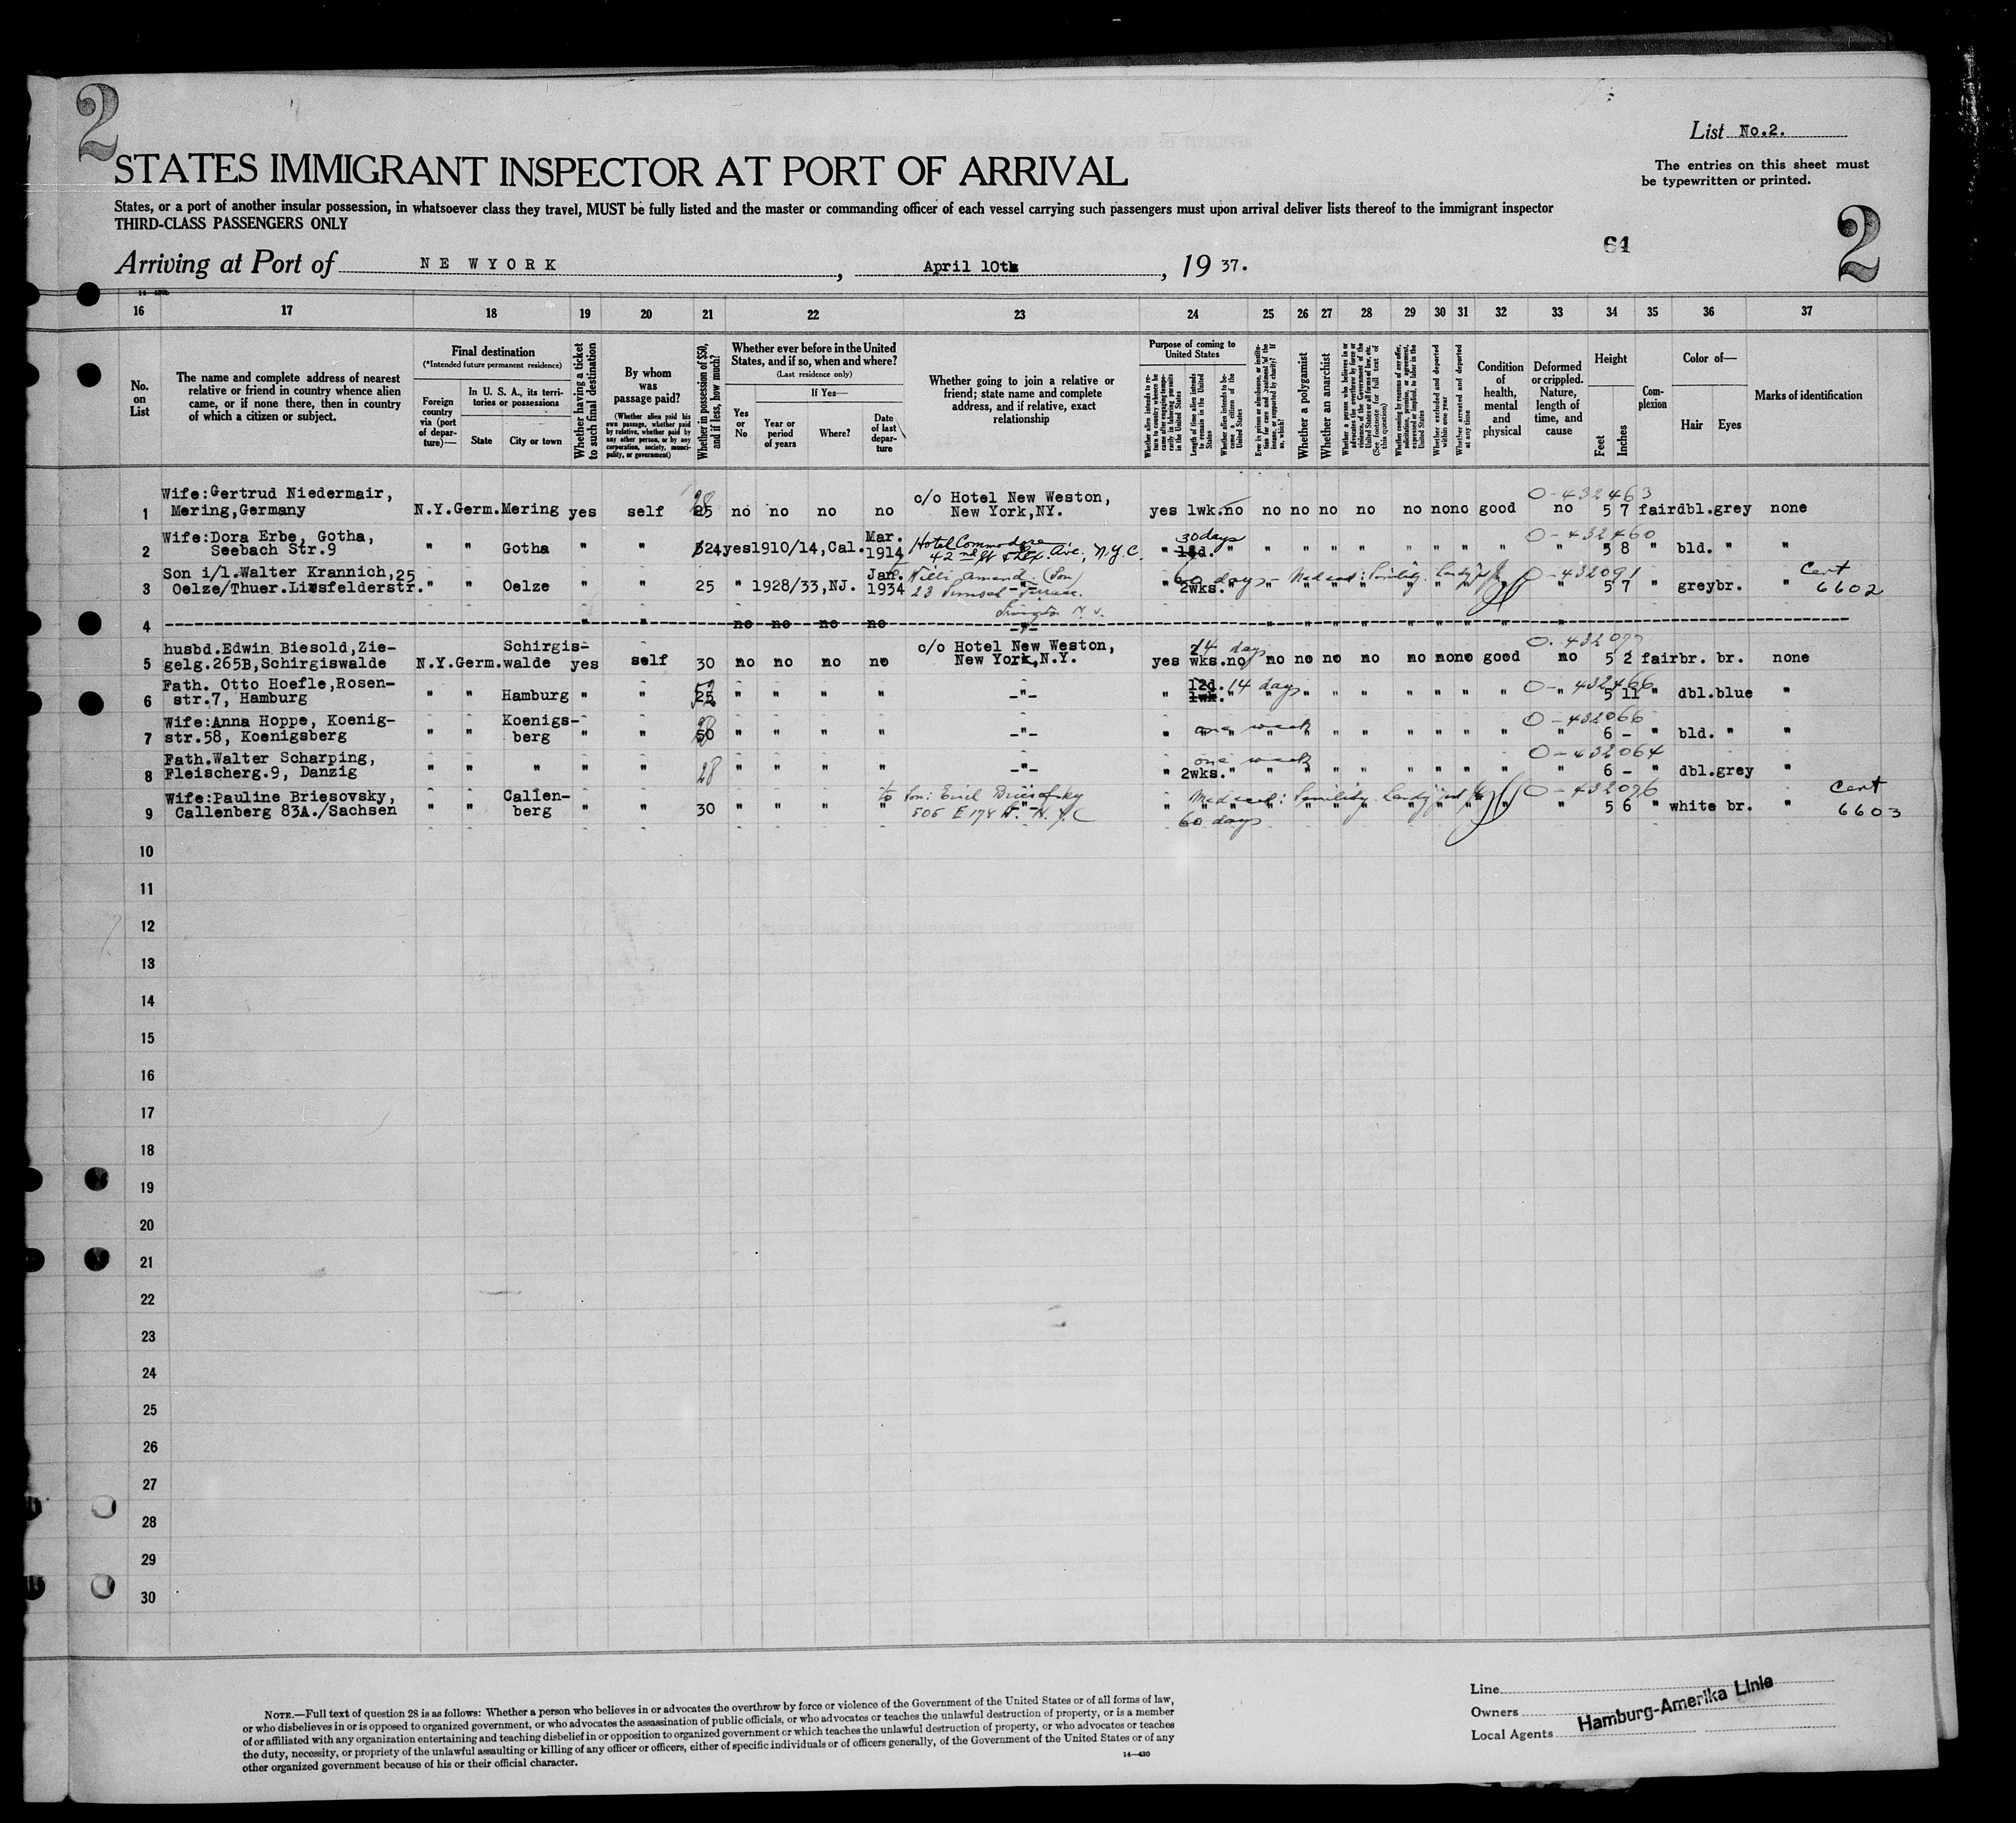 2
List No.2.
STATES IMMIGRANT INSPECTOR AT PORT OF ARRIVAL
The entries on this sheet must
be typewritten or printed.
States, or a port of another insular possession, in whatsoever class they travel, MUST be fully listed and the master or commanding officer of each vessel carrying such passengers must upon arrival deliver lists thereof to the immigrant inspector
THIRD-CLASS PASSENGERS ONLY
64
2
Arriving at Port of N E W Y O R K , April 10th , 19 37.
16 17 18 19 20 21 22 23 24 25 26 27 28 29 30 31 32 33 34 35 36 37
No. on List
The name and complete address of nearest
relative or friend in country whence alien
came, or if none there, then in country
of which a citizen or subject.
Final destination
(*Intended future permanent residence)
Foreign country via (port of departure)—
In U. S. A., its territories or possessions
State
City or town
Whether having a ticket to such final destination
By whom was passage paid?
(Whether alien paid his own passage, whether paid by relative, whether paid by any other person, or by any corporation, society, municipality, or government)
Whether in possession of $50, and if less, how much?
Whether ever before in the United
States, and if so, when and where?
(Last residence only)
Yes or No
If Yes—
Year or period of years
Where?
Date of last departure
Whether going to join a relative or
friend; state name and complete
address, and if relative, exact
relationship
Purpose of coming to United States
Whether alien intends to return to country whence he came after engaging temporarily in laboring pursuits in the United States
Length of time alien intends to remain in the United States
Whether alien intends to become a citizen of the United States
Whether a polygamist
Whether an anarchist
Whether excluded and deported within one year
Whether arrested and deported at any time
Condition of health, mental and physical
Deformed or crippled. Nature, length of time, and cause
Height
Feet
Inches
Complexion
Color of—
Hair
Eyes
Marks of identification
Wife:Gertrud Niedermair, 28 c/o Hotel New Weston, 0-432463
1 Mering,Germany N.Y.Germ.Mering yes self 25 no no no no New York,NY. yes 1wk.no no no no no no no no good no 5 7 fair dbl.grey none
Wife:Dora Erbe, Gotha, Mar. Hotel Commodore 30 days 0-432460
2 Seebach Str.9 " " Gotha " " 24 yes 1910/14,Cal. 1914 42nd St & Lex. Ave., N.Y.C. " " " " " " " " " " " " 5 8 " bld. " "
Son i/l.Walter Krannich,25 Jan. Willi Amend (Son) 60 days Med cert: Senility 0-432091 Cert
3 Oelze/Thuer.Liesfelderstr. " " Oelze " " 25 " 1928/33,NJ. 1934 23 Sunset Terrace. " 2wks. " " " " " " " " " " 5 7 " grey br. " 6602
Irvington N.J.
4 no no no no
husbd.Edwin Biesold,Zie- Schirgis- c/o Hotel New Weston, 14 days
5 gelg.265B,Schirgiswalde N.Y.Germ.walde yes self 30 no no no no New York,N.Y. yes wks.no no no no no no no no good no 5 2 fair br. br. none
Fath. Otto Hoefle,Rosen- 12d. 14 days 0-432466
6 str.7, Hamburg " " Hamburg " " 25 " " " " -"- " 1wk. " " " " " " " " " " 5 11 " dbl.blue "
Wife:Anna Hoppe, Koenig- Koenigs- 0-432066
7 str.58, Koenigsberg " " berg " " 50 " " " " -"- " one week " " " " " " " " " 6 - " bld. " "
Fath.Walter Scharping, one week 0-432064
8 Fleischerg.9, Danzig " " " " " 28 " " " " -"- " 2wks. " " " " " " " " " " 6 - " dbl.grey "
Wife:Pauline Briesovsky, Callen- to Son: Emil Briesofsky Med cert: Senility 0-432096 Cert
9 Callenberg 83A./Sachsen " " berg " " 30 " " " " 505 E 174 St. N.Y.C " 60 days " " " " " " " " " 5 6 " white br. " 6603
10
11
12
13
14
15
16
17
18
19
20
21
22
23
24
25
26
27
28
29
30
NOTE.—Full text of question 28 is as follows: Whether a person who believes in or advocates the overthrow by force or violence of the Government of the United States or of all forms of law,
or who disbelieves in or is opposed to organized government, or who advocates the assassination of public officials, or who advocates or teaches the unlawful destruction of property, or is a member
of or affiliated with any organization entertaining and teaching disbelief in or opposition to organized government or which teaches the unlawful destruction of property, or who advocates or teaches
the duty, necessity, or propriety of the unlawful assaulting or killing of any officer or officers, either of specific individuals or of officers generally, of the Government of the United States or of any
other organized government because of his or their official character.
14—430
Line
Owners
Local Agents
Hamburg-Amerika Linie